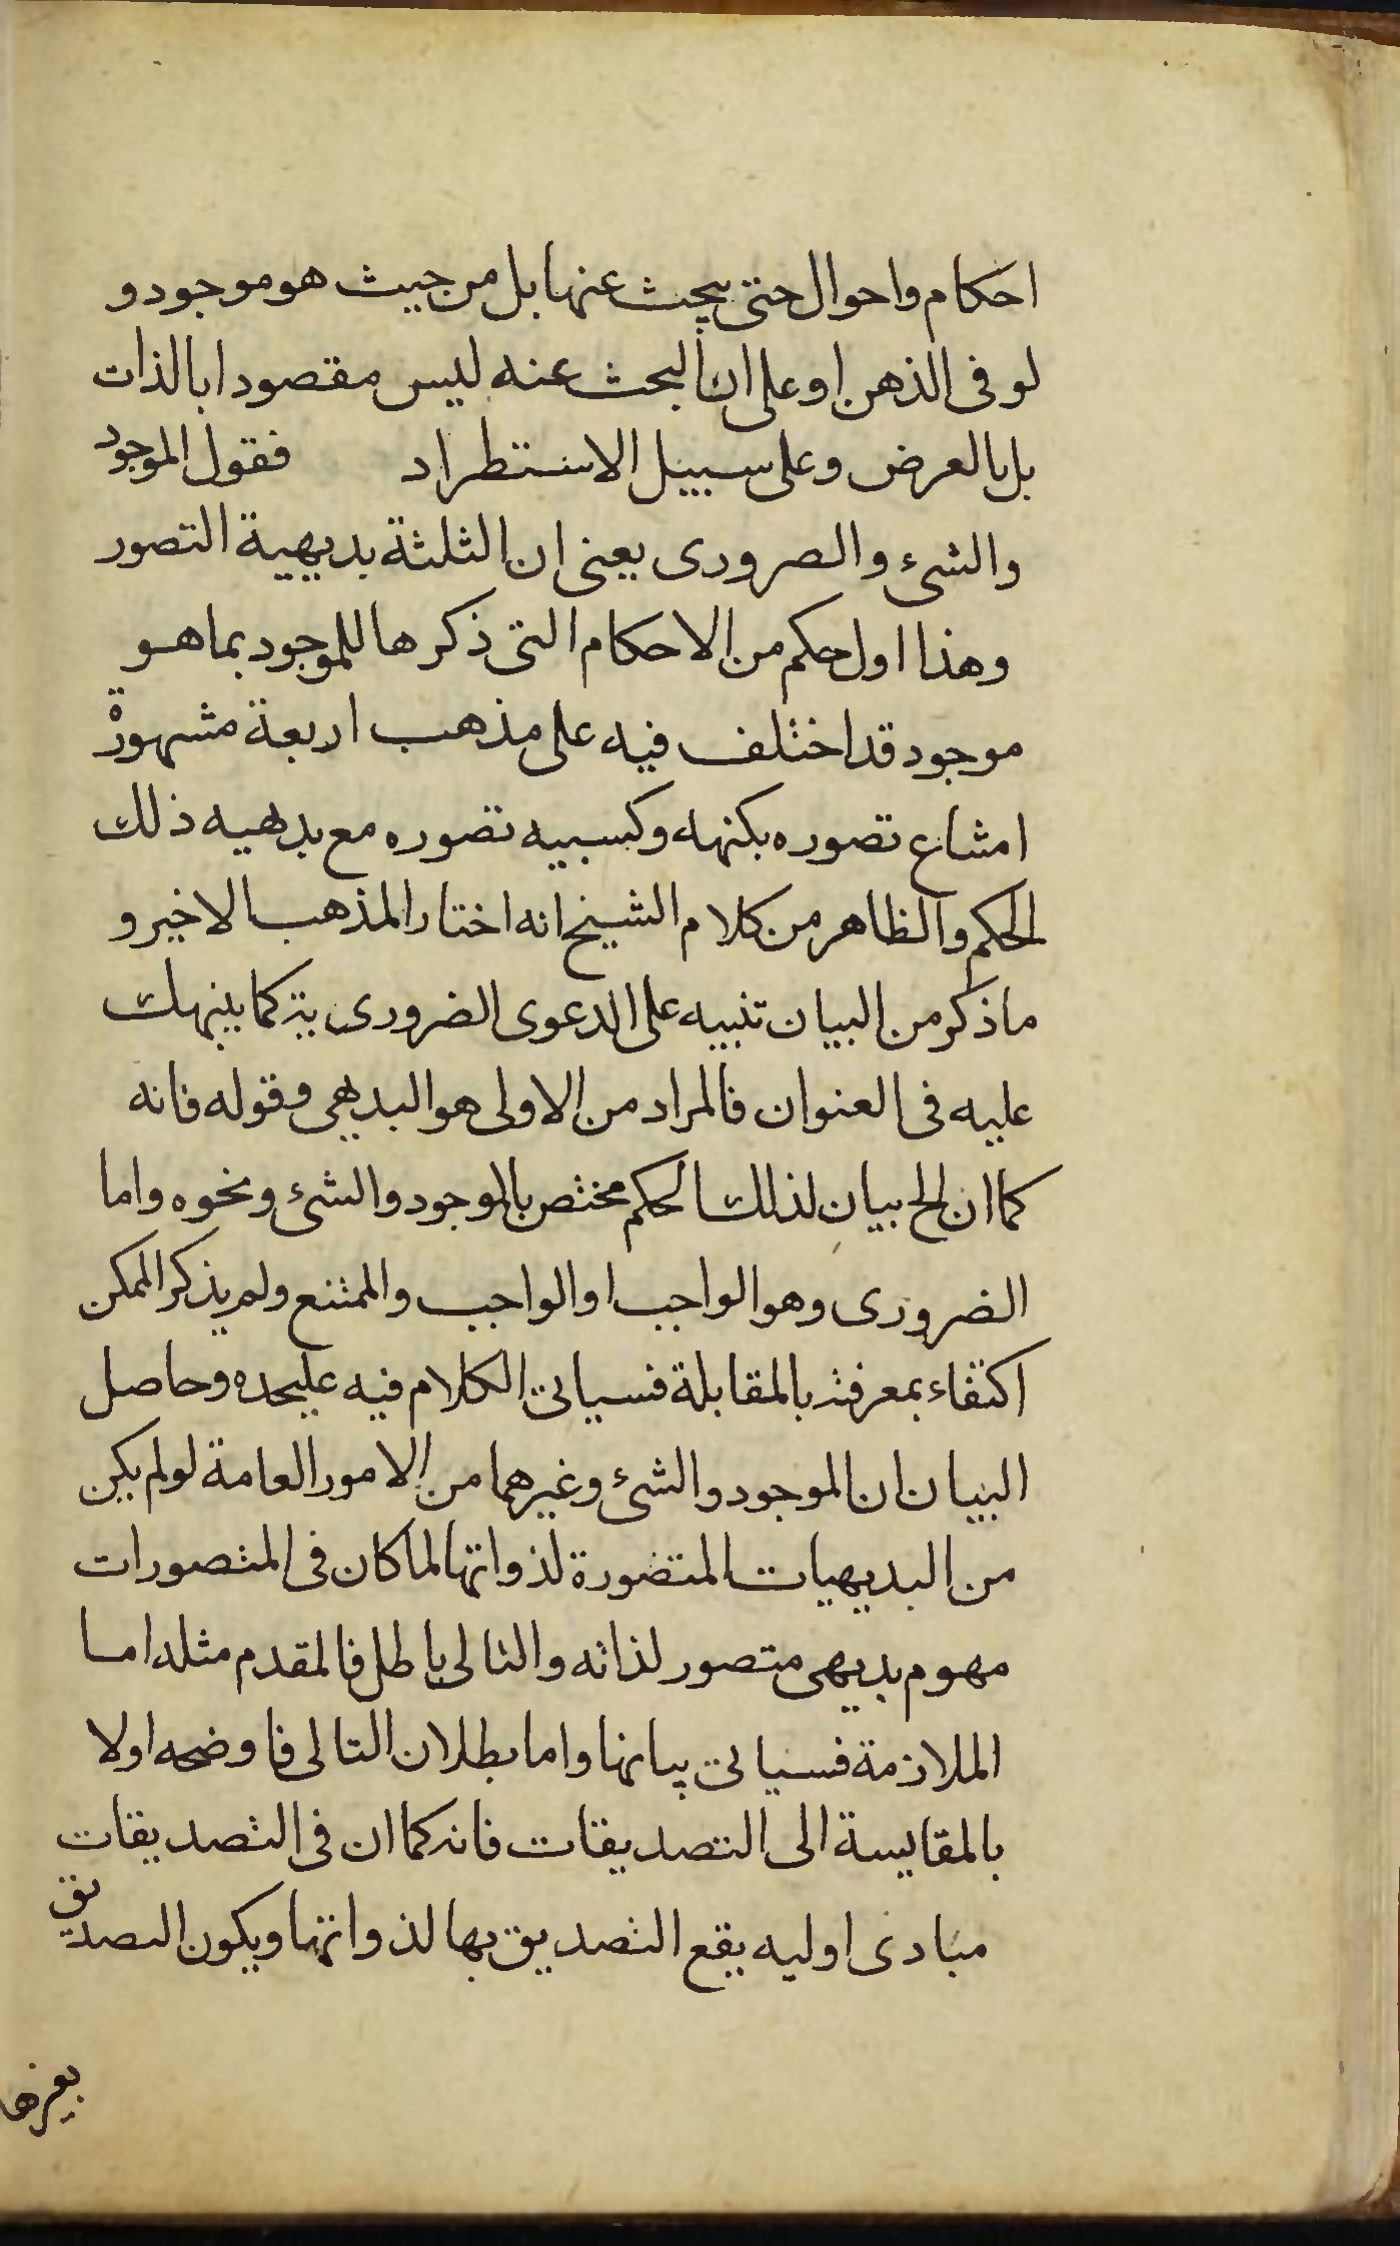 احكام واحوال حتى يبحث عنها بل من حيث هو موجود و
لو فى الذهن او على ان البحث عنه ليس مقصودا بالذات
بل بالعرض وعلى سبيل الاستطراد فقول الموجود
والشىء والصرورى يعنى ان الثلثة بديهية التصور
وهذا اول حكم من الاحكام التى ذكرها للموجود بما هو
موجود قد اختلف فيه على مذهب اربعة مشهورة
امتناع تصوره بكنهه وكسبيه تصوره مع بدهيه ذلك
الحكم والظاهر من كلام الشيخ انه اختار المذهب الاخير و
ما ذكر من البيان تنبيه على الدعوى الضرورى ية كما ينبهك
عليه فى العنوان فالمراد من الاولى هو البدهى وقوله فانه
كما ان الخ بيان لذلك الحكم مختص بالموجود والشىء ونحوه واما
الضرورى وهو الواجب او الواجب والممتنع ولم يذكر الممكن
اكتفاء بمعرفته بالمقابلة فسياتى الكلام فيه عليحده وحاصل
البيان ان الموجود والشىء وغيرهما من الامور العامة لو لم يكن
من البديهيات المتضورة لذواتها لما كان فى المتصورات
مهوم بديهى متصور لذاته والتالى باطل فالمقدم مثله اما
الملازمة فسياتى بيانها واما بطلان التالى فاوضحه اولا
بالمقايسة الى التصديقات فانه كما ان فى التصديقات
مبادى اوليه يقع التصديق بها لذواتها ويكون التصديق
بغيرها